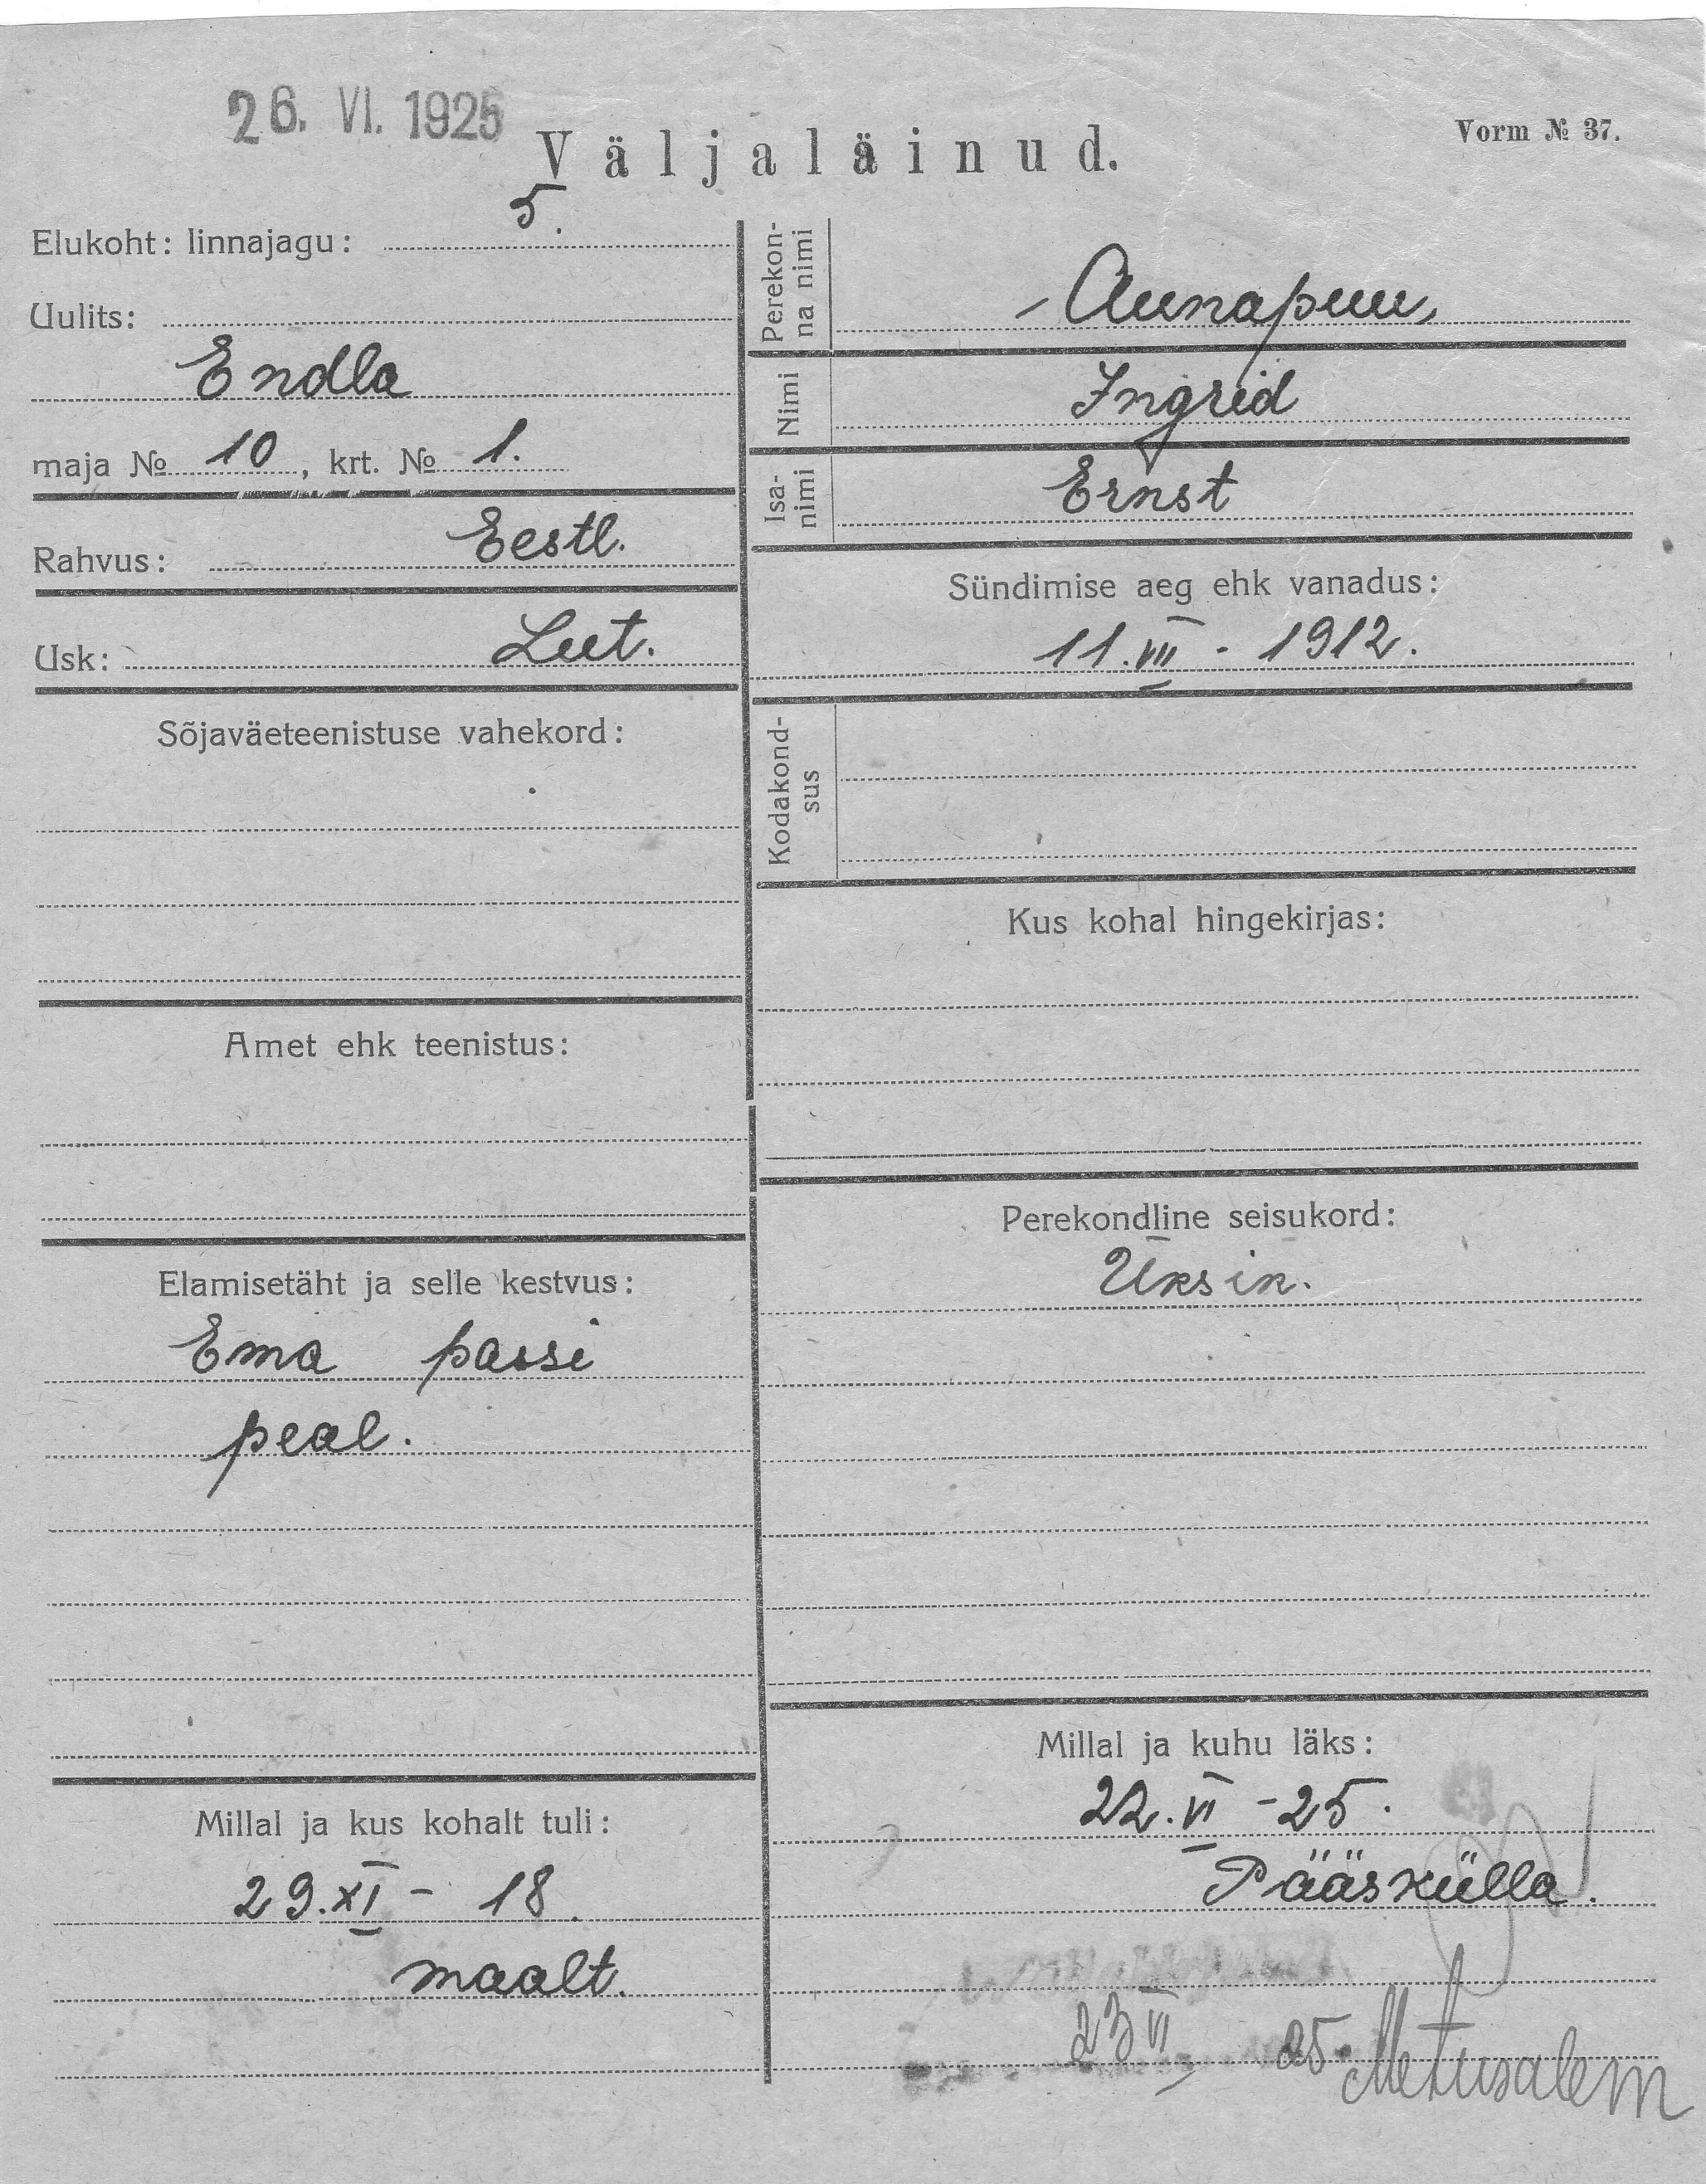 26. VI. 1925
Väljaläinud.
Vorm № 37.
Elukoht: linnajagu: 5.
Uulits:
Endla
maja № 10, krt. № 1.
Rahvus: Eestl.
Usk: Lut.
Sõjaväeteenistuse vahekord:
Amet ehk teenistus:
Elamisetäht ja selle kestvus:
Ema passi
peal.
Millal ja kus kohalt tuli:
29.XI - 18.
maalt.
Perekon-
na nimi
Aunapuu,
Nimi
Ingrid
Isa-
nimi
Ernst
Sündimise aeg ehk vanadus:
11.VII - 1912.
Kodakond-
sus
Kus kohal hingekirjas:
Perekondline seisukord:
Üksik.
Millal ja kuhu läks:
22.VI - 25.
Pääskülla.
23 VI 25. Metusalem